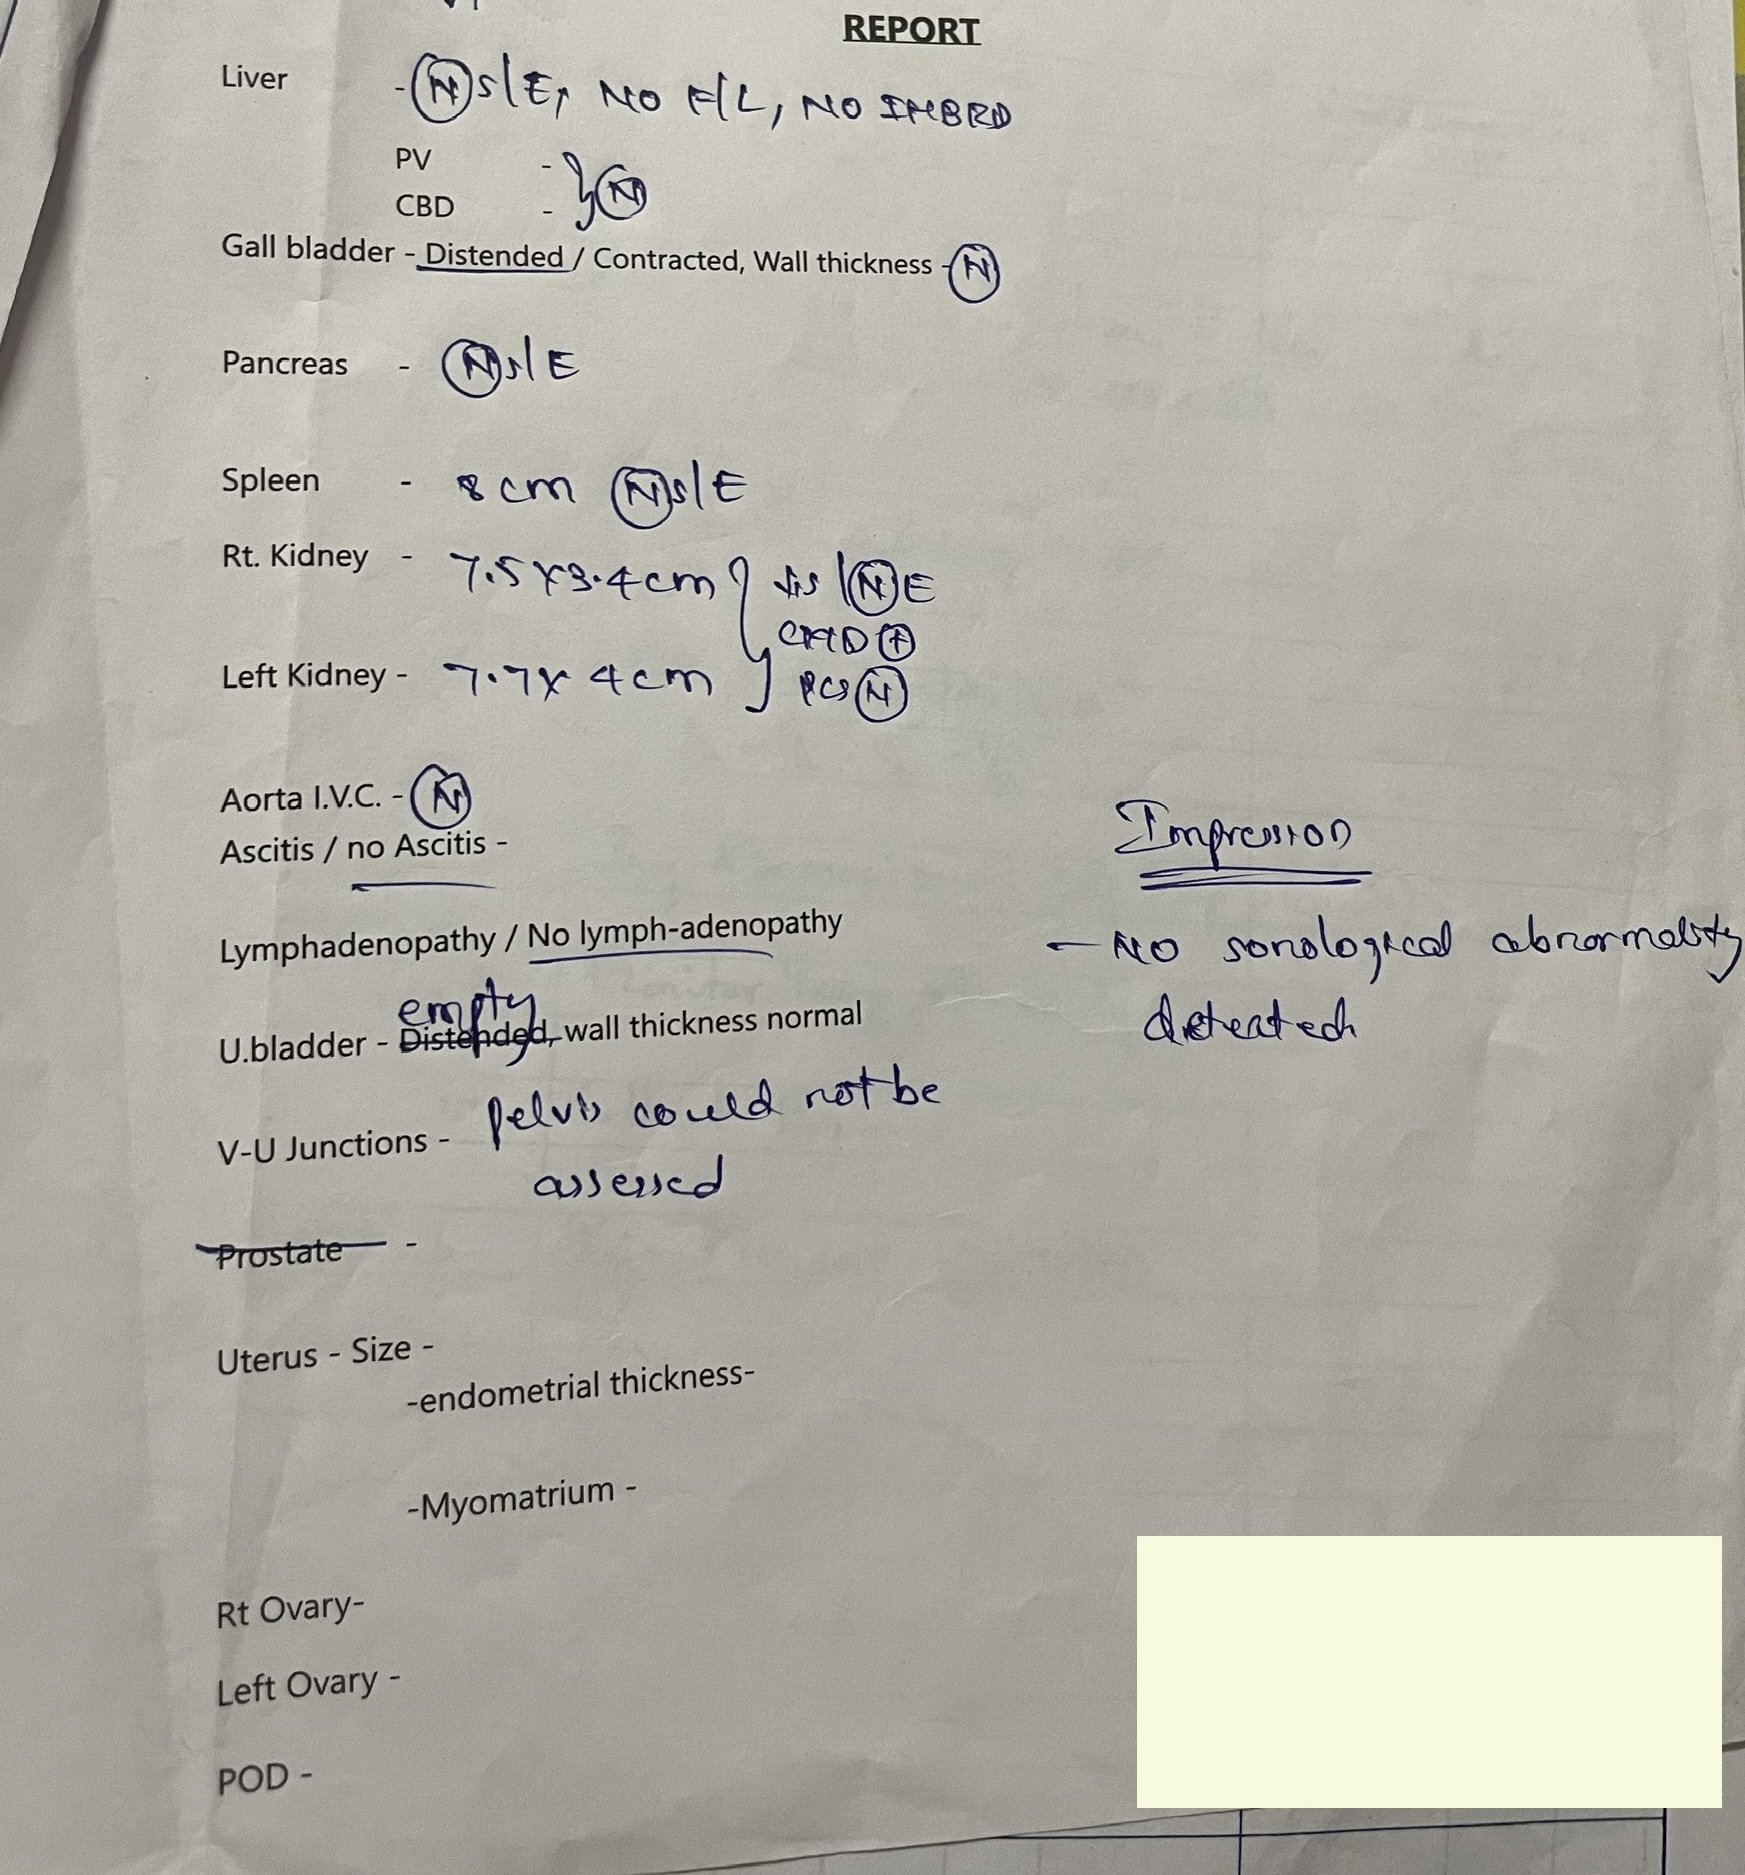 REPORT
Liver - Ⓝ S/E, NO F/L, NO IHBRD
PV - } Ⓝ
CBD -
Gall bladder - Distended / Contracted, Wall thickness - Ⓝ
Pancreas - Ⓝ S/E
Spleen - 8 cm Ⓝ S/E
Rt. Kidney - 7.5 x 3.4 cm } Ⓝ E
CMD ⊕
Left Kidney - 7.7 x 4 cm PCS Ⓝ
Aorta I.V.C. - Ⓝ
Ascitis / no Ascitis -
Lymphadenopathy / No lymph-adenopathy
empty
U.bladder - Distended, wall thickness normal
V-U Junctions - Pelvis could not be
assessed
Prostate -
Uterus - Size -
-endometrial thickness-
-Myomatrium -
Rt Ovary-
Left Ovary -
POD -
Impression
- NO sonological abnormality
detected